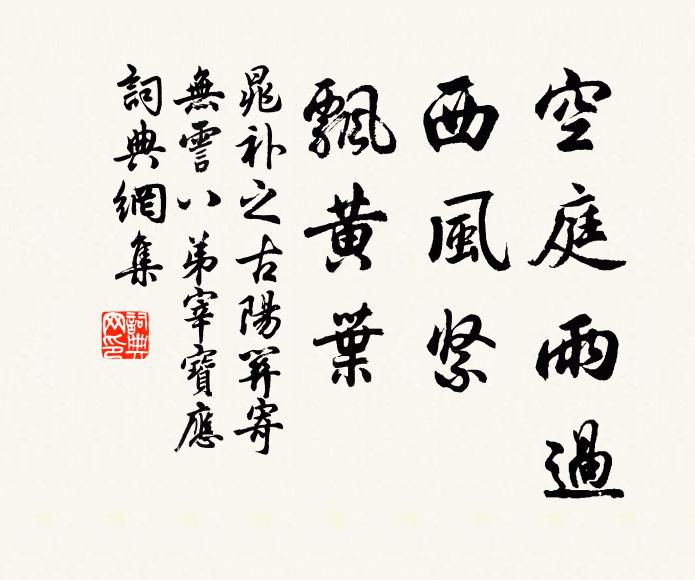 空庭雨過
西風緊
飄黃葉
晁補之古陽關寄
無斁八弟宰寶應
詞典網集
詞典网印